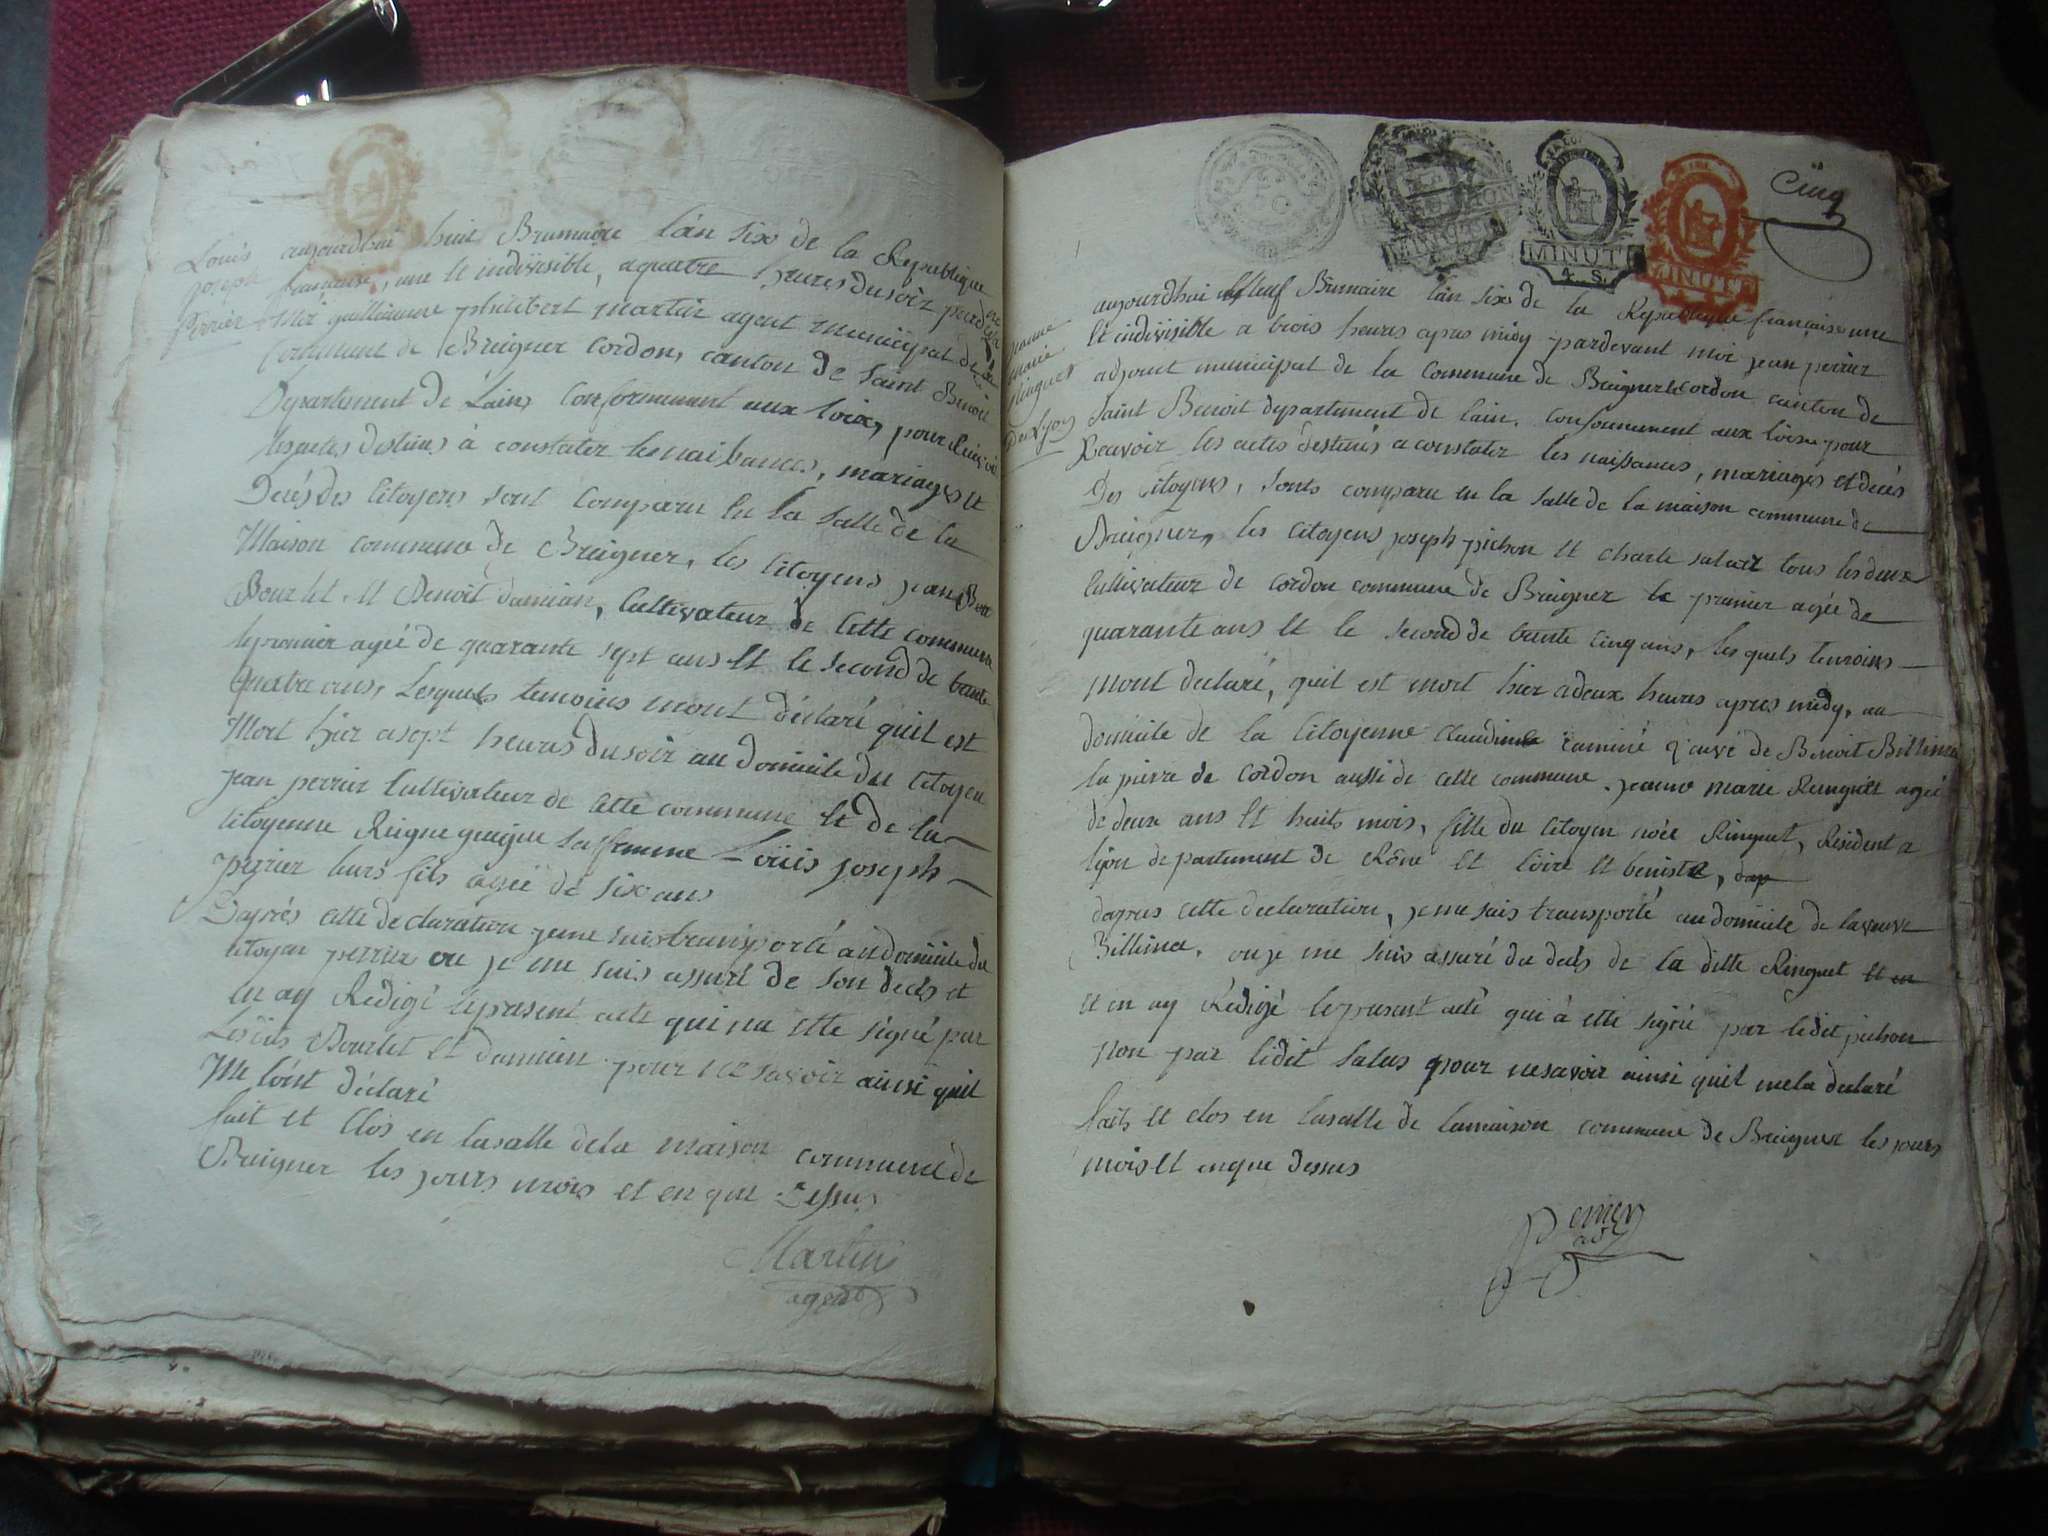 Louis
joseph
perrier
aujourdhui huit Brumaire l'an six de la Republique
francaise, une et indivisible, a quatre heures du soir pardevant
Moi guilliaume philibert martin agent municipal de la
Commune de Breigner Cordon, canton de Saint Benoit
Departement de Lain, Conformement aux loix, pour Recevoir
les actes destinés à constater les naissances, mariages et
Decés des citoyens sont comparu en la salle de la
Maison commune de Breigner, les citoyens jean
Bourlet et Benoit damian, cultivateur de cette commune
le premier agée de quarante sept ans et le second de trente
quatre ans, Lesquels temoins mont déclaré quil est
Mort hier a sept heures du soir au domicile du citoyen
jean perrier Cultivateur de cette commune et de la
citoyenne guigue sa femme Louis joseph
perrier leurs fils agée de six ans
D'aprés cette declaration je me suis transporté au domicile du
citoyen perrier ou je me suis assuré de son decés et
en ay Redigé le present acte qui na etté signé par
Lesdits Bourlet et damian pour ne savoir ainsi quil
Me lont déclaré
fait et clos en la salle de la maison commune de
Breigner les jours mois et en que dessus
Martin
agent
Cinq
MINUTE
4. S.
MINUTE
jeanne
marie
Ringuet
De Lyon
aujourdhui neuf Brumaire l'an six de la Republique francaise une
et indivisible a trois heures apres midy pardevant moi jean perrier
adjoint municipal de la commune de Breigner et Cordon canton de
Saint Benoit departement de lain, conformement aux loix pour
Recevoir les actes destinés a constater les naissances, mariages et decés
Des citoyens, sonts comparu en la salle de la maison commune de
Breigner, les citoyens joseph pichon et charle salut tous les deux
Cultivateur de cordon commune de Breigner le premier agée de
quarante ans et le second de trente cinq ans, les quels temoins
mont declaré, quil est mort hier a deux heures apres midy, au
domicile de la citoyenne Claudine de Benoit Billima
la pierre de cordon aussi de cette commune. jeanne marie Runguet agée
de deux ans et huits mois, fille du citoyen Ringuet, Resident a
lyon departement de Rône et loire et
dapres cette declaration, je me suis transporté au domicile de la veuve
Billima, ou je me suis assuré du decés de la ditte Ringuet et en
et en ay Rédigé le present acte qui à etté signé par ledit pichon
non par ledit Salus pour ne savoir ainsi quil me la declaré
faits et clos en la salle de la maison commune de Breigner les jours
mois et en que dessus
Perrier
adj